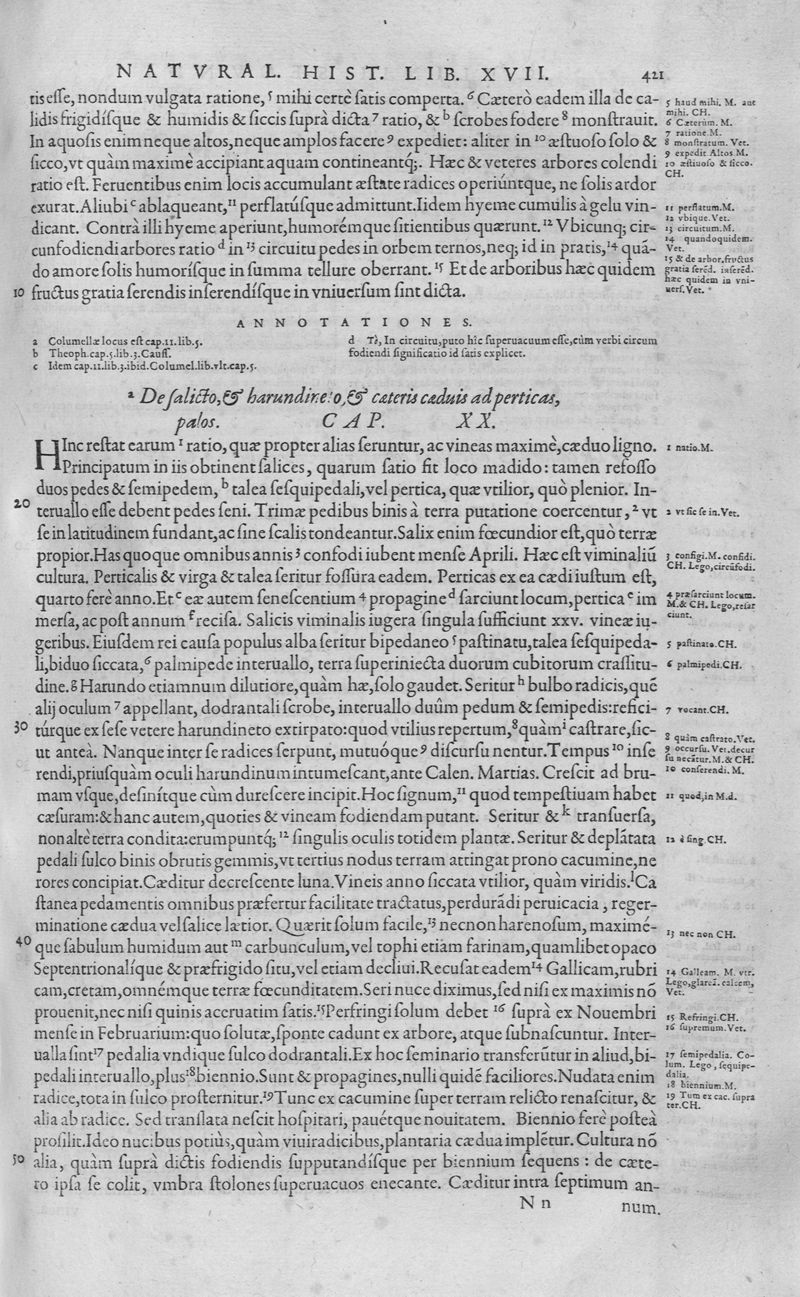 NATVRAL. HIST. LIB. XVII. 421
tis eſſe, nondum vulgata ratione, 5 mihi certè ſatis comperta. 6 Cæterò eadem illa de ca-
lidis frigidíſque & humidis & ſiccis ſuprà dicta 7 ratio, & b ſcrobes fodere 8 monſtrauit.
In aquoſis enim neque altos, neque amplos facere 9 expediet: aliter in 10 æſtuoſo ſolo &
ſicco, vt quàm maximè accipiant aquam contineantq;. Hæc & veteres arbores colendi
ratio eſt. Feruentibus enim locis accumulant æſtate radices operiúntque, ne ſolis ardor
exurat. Aliubi c ablaqueant, 11 perflatúſque admittunt. Iidem hyeme cumulis à gelu vin-
dicant. Contrà illi hyeme aperiunt, humorémque ſitientibus quærunt. 12 Vbicunq; cir-
cunfodiendi arbores ratio d in 13 circuitu pedes in orbem ternos, neq; id in pratis, 14 quã-
do amore ſolis humoríſque in ſumma tellure oberrant. 15 Et de arboribus hæc quidem
10 fructus gratia ſerendis inſerendíſque in vniuerſum ſint dicta.
5 haud mihi. M. aut
mihi. CH.
6 Cæterùm. M.
7 ratione. M.
8 monſtratum. Vet.
9 expedit Altos. M.
10 æſtiuoſo & ſicco.
CH.
11 perflatum. M.
12 vbique. Vet.
13 circuitum. M.
14 quandoquidem.
Vet.
15 & de arbor. fructus
gratia ſerẽd. inſerẽd.
hæc quidem in vni-
uerſ. Vet.
ANNOTATIONES.
a Columellæ locus eſt cap. 11. lib. 5.
b Theoph. cap. 5. lib. 3. Cauſſ.
c Idem cap. 11. lib. 3. ibid. Columel. lib. vlt. cap. 5.
d Tè, In circuitu, puto hîc ſuperuacuum eſſe, cùm verbi circum
fodiendi ſignificatio id ſatis explicet.
a De ſalicto, & harundineto, & cæteris cæduis ad perticas,
palos. CAP. XX.
HInc reſtat earum 1 ratio, quæ propter alias ſeruntur, ac vineas maximè, cæduo ligno.
Principatum in iis obtinent ſalices, quarum ſatio fit loco madido: tamen refoſſo
duos pedes & ſemipedem, b talea ſeſquipedali, vel pertica, quæ vtilior, quò plenior. In-
20 teruallo eſſe debent pedes ſeni. Trimæ pedibus binis à terra putatione coercentur, 2 vt
ſe in latitudinem fundant, ac ſine ſcalis tondeantur. Salix enim fœcundior eſt, quò terræ
propior. Has quoque omnibus annis 3 confodi iubent menſe Aprili. Hæc eſt viminaliũ
cultura. Perticalis & virga & talea ſeritur foſſura eadem. Perticas ex ea cædi iuſtum eſt,
quarto ferè anno. Et c eæ autem ſeneſcentium 4 propagine d ſarciunt locum, pertica e im
merſa, ac poſt annum f reciſa. Salicis viminalis iugera ſingula ſufficiunt xxv. vineæ iu-
geribus. Eiuſdem rei cauſa populus alba ſeritur bipedaneo 5 paſtinatu, talea ſeſquipeda-
li, biduo ſiccata, 6 palmipede interuallo, terra ſuperiniecta duorum cubitorum craſſitu-
dine. g Harundo etiamnum dilutiore, quàm hæ, ſolo gaudet. Seritur h bulbo radicis, quẽ
alij oculum 7 appellant, dodrantali ſcrobe, interuallo duûm pedum & ſemipedis: refici-
30 túrque ex ſeſe vetere harundineto extirpato: quod vtilius repertum, 8 quàm i caſtrare, ſic-
ut anteà. Nanque inter ſe radices ſerpunt, mutuóque 9 diſcurſu nentur. Tempus 10 inſe
rendi, priuſquàm oculi harundinum intumeſcant, ante Calen. Martias. Creſcit ad bru-
mam vſque, definítque cùm dureſcere incipit. Hoc ſignum, 11 quod tempeſtiuam habet
cæſuram: & hanc autem, quoties & vineam fodiendam putant. Seritur & k tranſuerſa,
non altè terra condita: erumpuntq; 12 ſingulis oculis totidem plantæ. Seritur & deplãtata
pedali ſulco binis obrutis gemmis, vt tertius nodus terram attingat prono cacumine, ne
rores concipiat. Cæditur decreſcente luna. Vineis anno ſiccata vtilior, quàm viridis. l Ca
ſtanea pedamentis omnibus præfertur facilitate tractatus, perdurãdi peruicacia, reger-
minatione cædua vel ſalice lætior. Quærit ſolum facile, 13 nec non harenoſum, maximé-
40 que ſabulum humidum aut m carbunculum, vel tophi etiam farinam, quamlibet opaco
Septentrionalíque & præfrigido ſitu, vel etiam decliui. Recuſat eadem 14 Gallicam, rubri
cam, cretam, omnémque terræ fœcunditatem. Seri nuce diximus, ſed niſi ex maximis nõ
prouenit, nec niſi quinis aceruatim ſatis. 15 Perfringi ſolum debet 16 ſuprà ex Nouembri
menſe in Februarium: quo ſolutæ, ſponte cadunt ex arbore, atque ſubnaſcuntur. Inter-
ualla ſint 17 pedalia vndique ſulco dodrantali. Ex hoc ſeminario transferũtur in aliud, bi-
pedali interuallo, plus 18 biennio. Sunt & propagines, nulli quidẽ faciliores. Nudata enim
radice, tota in ſulco proſternitur. 19 Tunc ex cacumine ſuper terram relicto renaſcitur, &
alia ab radice. Sed tranſlata neſcit hoſpitari, pauétque nouitatem. Biennio ferè poſteà
proſilit. Ideo nucibus potiùs, quàm viuiradicibus, plantaria cædua implẽtur. Cultura nõ
50 alia, quàm ſuprà dictis fodiendis ſupputandíſque per biennium ſequens: de cæte-
ro ipſa ſe colit, vmbra ſtolones ſuperuacuos enecante. Cæditur intra ſeptimum an-
N n num.
1 natio. M.
2 vt ſic ſe in. Vet.
3 configi. M. confidi.
CH. Lego, circũfodi.
4 præſarciunt locum.
M. & CH. Lego, reſar
ciunt.
5 paſtinato. CH.
6 palmipedi. CH.
7 vocant. CH.
8 quàm caſtrato. Vet.
9 occurſu. Vet. decur
ſu necãtur. M. & CH.
10 conſerendi. M.
11 quod, in M. d.
12 è ſing. CH.
13 nec non CH.
14 Galleam. M. vtr.
Lego, glareã. calcem,
Vet.
15 Refringi. CH.
16 ſupremum. Vet.
17 ſemipedalia. Co-
lum. Lego, ſequipe-
dalia.
18 biennium. M.
19 Tum ex cac. ſupra
ter. CH.